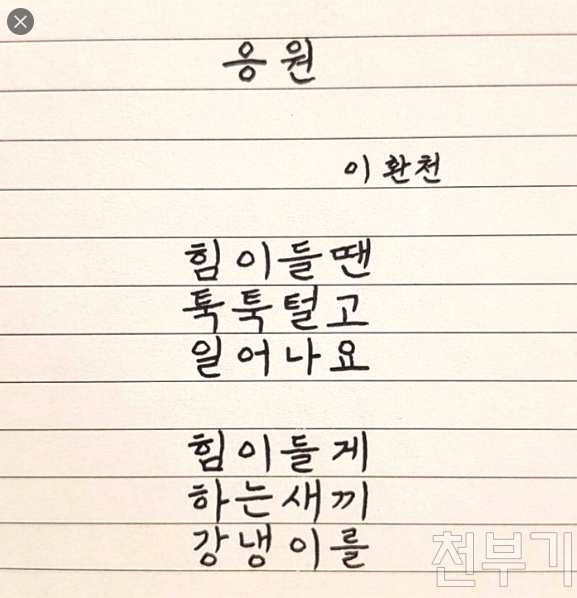 응원
이환천
힘이들땐
툭툭털고
일어나요
힘이들게
하는새끼
강냉이를
천부기